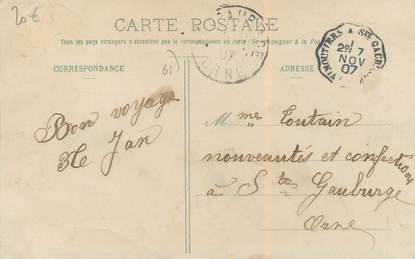 20€
CARTE POSTALE
Tous les pays étrangers n'acceptent pas la correspondance au recto (Se renseigner à la Poste)
CORRESPONDANCE
ADRESSE
61
07
ORNE
VIMOUTIERS A STE GAUBURGE
2E / 7
NOV
07
Bon voyage
Jan
Mme Toutain
nouveautés et confections
à Ste Gauburge
Orne